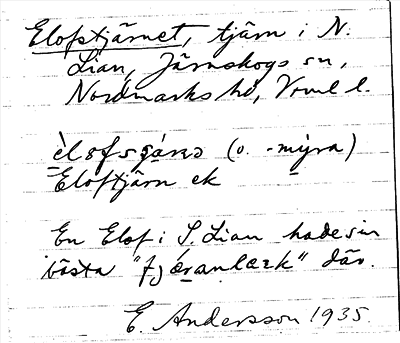 Elofstjärnet, tjärn i N.
Lian, Järnskogs sn,
Nordmarks hd, Vrml l.
èlofsɡánə (o. -mýra)
Eloftjärn ek
En Elof i S. Lian hade sin
bästa "fjǽranlæk" där.
E. Andersson 1935.